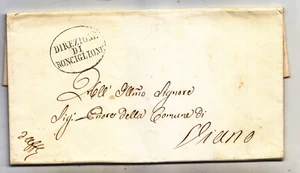 DIREZIONE
DI
RONCIGLIONE
All' Illmo Signore
Sig. Priore della Comune di
Viano